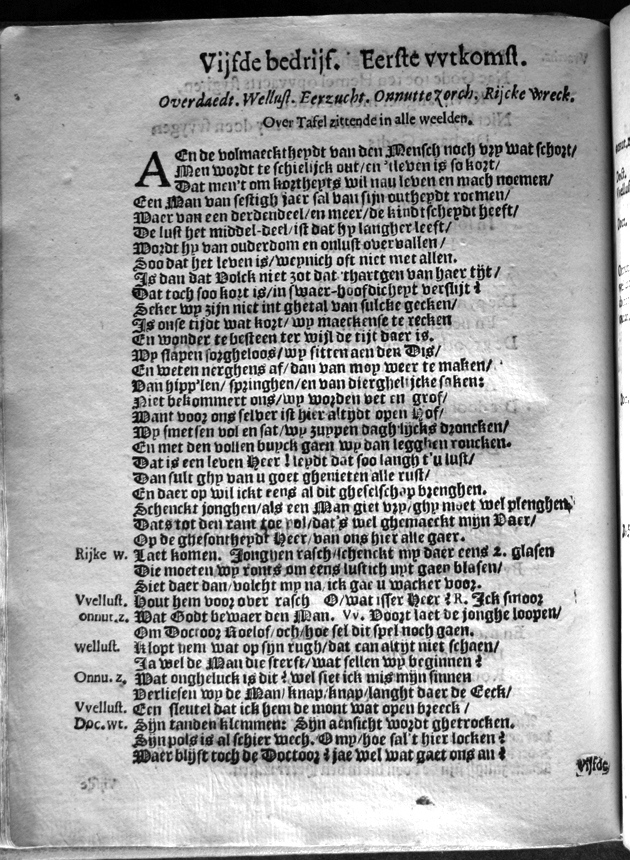 Vijfde bedrijf. Eerste vvtkomst.
Overdaedt. Wellust. Eerzucht. Onnutte zorch. Rijcke wreck.
Over Tafel zittende in alle weelden.
AEn de volmaecktheydt van den Mensch noch vry wat schort/
Men wordt te schielijck out/en 'tleven is so kort/
Dat men't om kortheyts wil nau leven en mach noemen/
Een Man van sestigh jaer sal van sijn outheydt roemen/
Maer van een derdendeel/en meer/de kindtscheydt heeft/
De lust het middel-deel/ist dat hy langher leeft/
Wordt hy van ouderdom en onlust overvallen/
Soo dat het leven is/weynich oft niet met allen.
Is dan dat Volck niet zot dat 'thartgen van haer tijt/
Dat toch soo kort is/in swaer-hoofdicheyt verslijt?
Seker wy zijn niet int ghetal van sulcke gecken/
Is onse tijdt wat kort/wy maeckense te recken
En wonder te besteen ter wijl de tijt daer is.
Wy slapen sorgheloos/wy sitten aen den Dis/
En weten nerghens af/dan van moy weer te maken/
Van hipp'len/springhen/en van dierghelijcke saken:
Niet bekommert ons/wy worden vet en grof/
Want voor ons selver ist hier altydt open Hof/
Wy smetsen vol en sat/wy zuypen daghlijcks droncken/
En met den vollen buyck gaen wy dan legghen roncken.
Dat is een leven Heer! leydt dat soo langh t'u lust/
Dan sult ghy van u goet ghenieten alle rust/
En daer op wil ickt eens al dit gheselschap brenghen.
Schenckt jonghen/als een Man giet vry/ghy moet wel plenghen,
Dats tot den rant toe vol/dat's wel ghemaeckt mijn Vaer/
Op de ghesontheydt Heer/van ons hier alle gaer.
Rijke w. Laet komen. Jonghen rasch/schenckt my daer eens 2. glasen
Die moeten wy ronts om eens lustich uyt gaen blasen/
Siet daer dan/volcht my na/ick gae u wacker voor.
Vvellust. Hout hem voor over rasch O/wat isser Heer? R. Ick smoor
onnut.z. Wat Godt bewaer den Man. Vv. Voort laet de jonghe loopen/
Om Doctoor Roelof/och/hoe sel dit spel noch gaen.
wellust. Klopt hem wat op sijn rugh/dat can altijt niet schaen/
Ja wel de Man die sterft/wat sellen wy beginnen?
Onnu. z. Wat ongheluck is dit? wel siet ick mis mijn sinnen
Verliesen wy de Man/knap/knap/langht daer de Eeck/
Vvellust. Een sleutel dat ick hem de mont wat open breeck/
Doc. wt. Sijn tanden klemmen: Sijn aensicht wordt ghetrocken.
Sijn pols is al schier wech. O my/hoe sal't hier locken?
Maer blijft toch de Doctoor? jae wel wat gaet ons an?
Vijfde